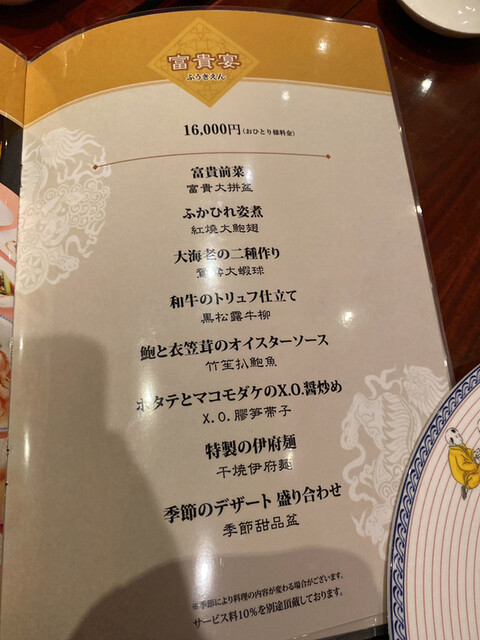 富貴宴
ふうきえん
16,000円(おひとり様料金)
富貴前菜
富貴大拼盆
ふかひれ姿煮
紅燒大鮑翅
大海老の二種作り
鴛鴦大蝦球
和牛のトリュフ仕立て
黒松露牛柳
鮑と衣笠茸のオイスターソース
竹笙扒鮑魚
ホタテとマコモダケのX.O.醤炒め
X.O.膠筍帶子
特製の伊府麺
干焼伊府麵
季節のデザート 盛り合わせ
季節甜品盆
※季節により料理の内容が変わる場合がございます。
サービス料10%を別途頂戴しております。